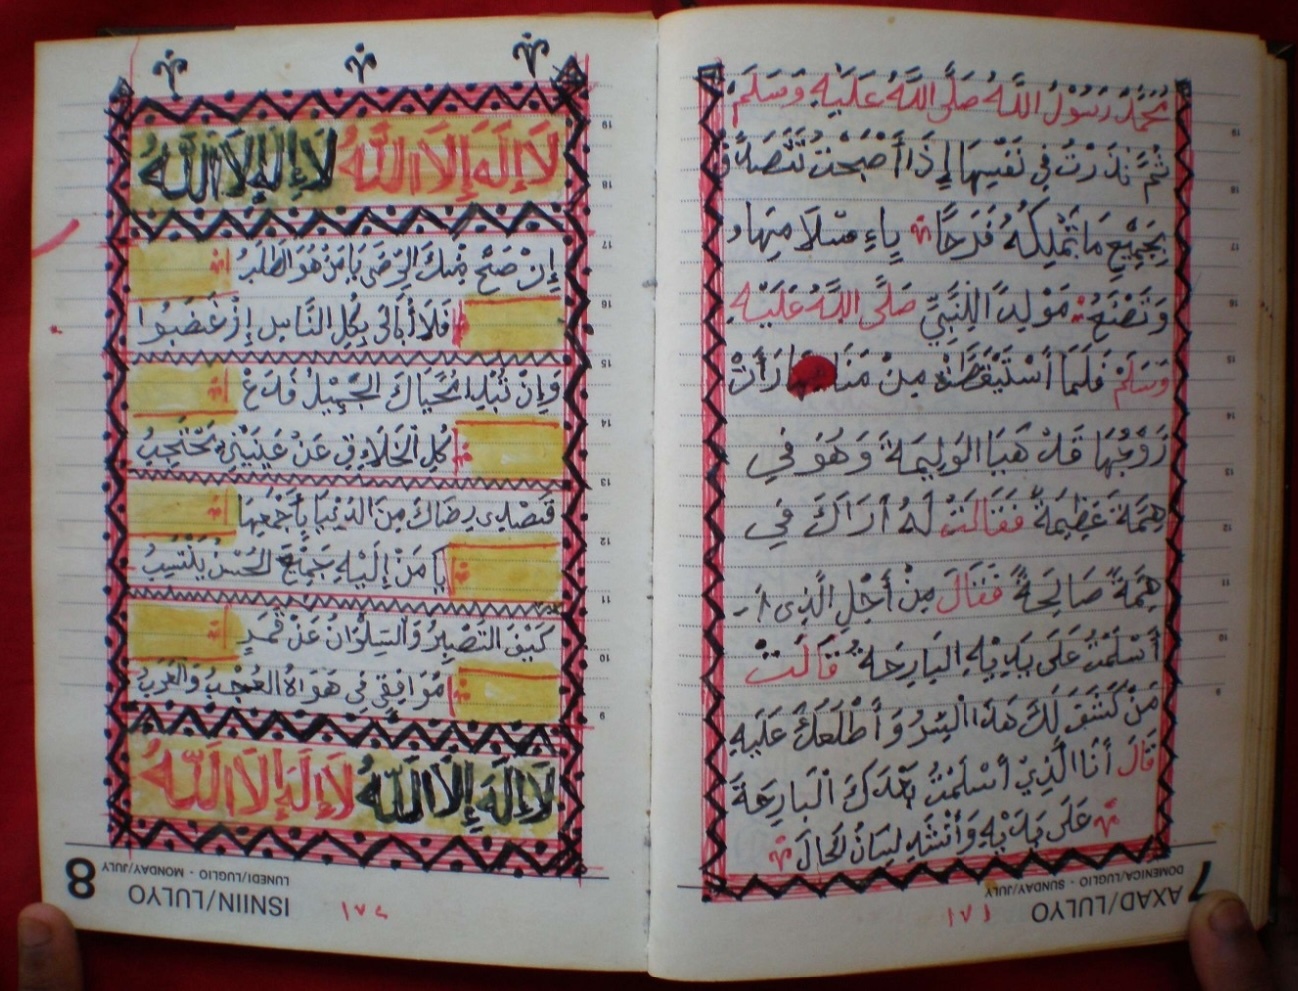 مُحَمَّدٌ رَسُوْلُ اللَّهُ صَلَّى اللَّهُ عَلَيْهِ وَسَلَّمَ
ثُمَّ نَذَرْتُ فِي نَفْسِهَا إِذَا أَصْبَحْتُ تَتَصَدَّقُ
بِجَمِيْعِ مَا تَمْلِكُهُ فَرَحًا
وَتَصْنَعُ مَوْلِدَ النَّبِيِّ صَلَّى اللَّهُ عَلَيْهِ
وَسَلَّمْ فَلَمَّا اسْتَيْقَظَتْ مِنْ رَأَتْ
زَوْجُهَا قَدْ هَيَا الوَلِيمَةَ وَهُوَ فِي
هِمَّةٍ عَظِيمَةٍ فَقَالَتْ لَهُ أَرَاكَ فِي
هِمَّةً صَالِحَةً فَقَالَ مِنْ أَجْلِ الَّذِي
أَسْلَمْتُ عَلَى يَدِيْهِ البَارِحَةْ قَالَتْ
مَنْ كَشَفَ لَكَ هَذَا السِّرُ وَأَطْلَعَكَ عَلَيْهِ
قَالَ أَنَا الَّذِيْ أَسْلَمْتُ بَعْدَكَ الْبَارِحَةَ
عَلَى يَدَيْهِ وَأَنْشَدِ لِسَانُ لْحَالَ
١٧١
7 AXAD/LULYO
DOMENICA/LUGLIO - SUNDAY/JULY
لَا إِلَهَ إِلَّا اللَّهُ لَا إِلَهَ إِلَّا اللَّهُ
إِنْ صَحَّ مِنْكَ الرِّضَى يَا مَنْ هُوَ الطَّلَبُ
فَلَا أُبَالِي بِكُلِ النَّاسِ إِنْ غَضَبُوا
وَإِنْ تَبَدَّا مُحَيَّاكَ الجَّمِيْلُ فَدَعْ
كُلِ الْخَلَائِقِ عَنْ عَيْنَيَّ تَحْتَجِبُ
قَصْدِي رِضَاكَ مِنَ الدُّنْيَا بِأَجْمَعِهَا
يَا مَنْ إِلَيْهِ جَمِيْعُ الحُسْنِ يَنْتَسِبُ
كَيْفَ التَّصَبُّرُ وَالسِّلْوَانُ عَنْ قَمَرٍ
مُوَافِقِي فِي هَوَاهُ العُجْبُ وَالْعَرَبُ
لَا إِلَهَ إِلَّا اللَّهُ لَا إِلَهَ إِلَّا اللَّهُ
١٧٢
8 ISNIIN/LULYO
LUNEDI/LUGLIO - MONDAY/JULY